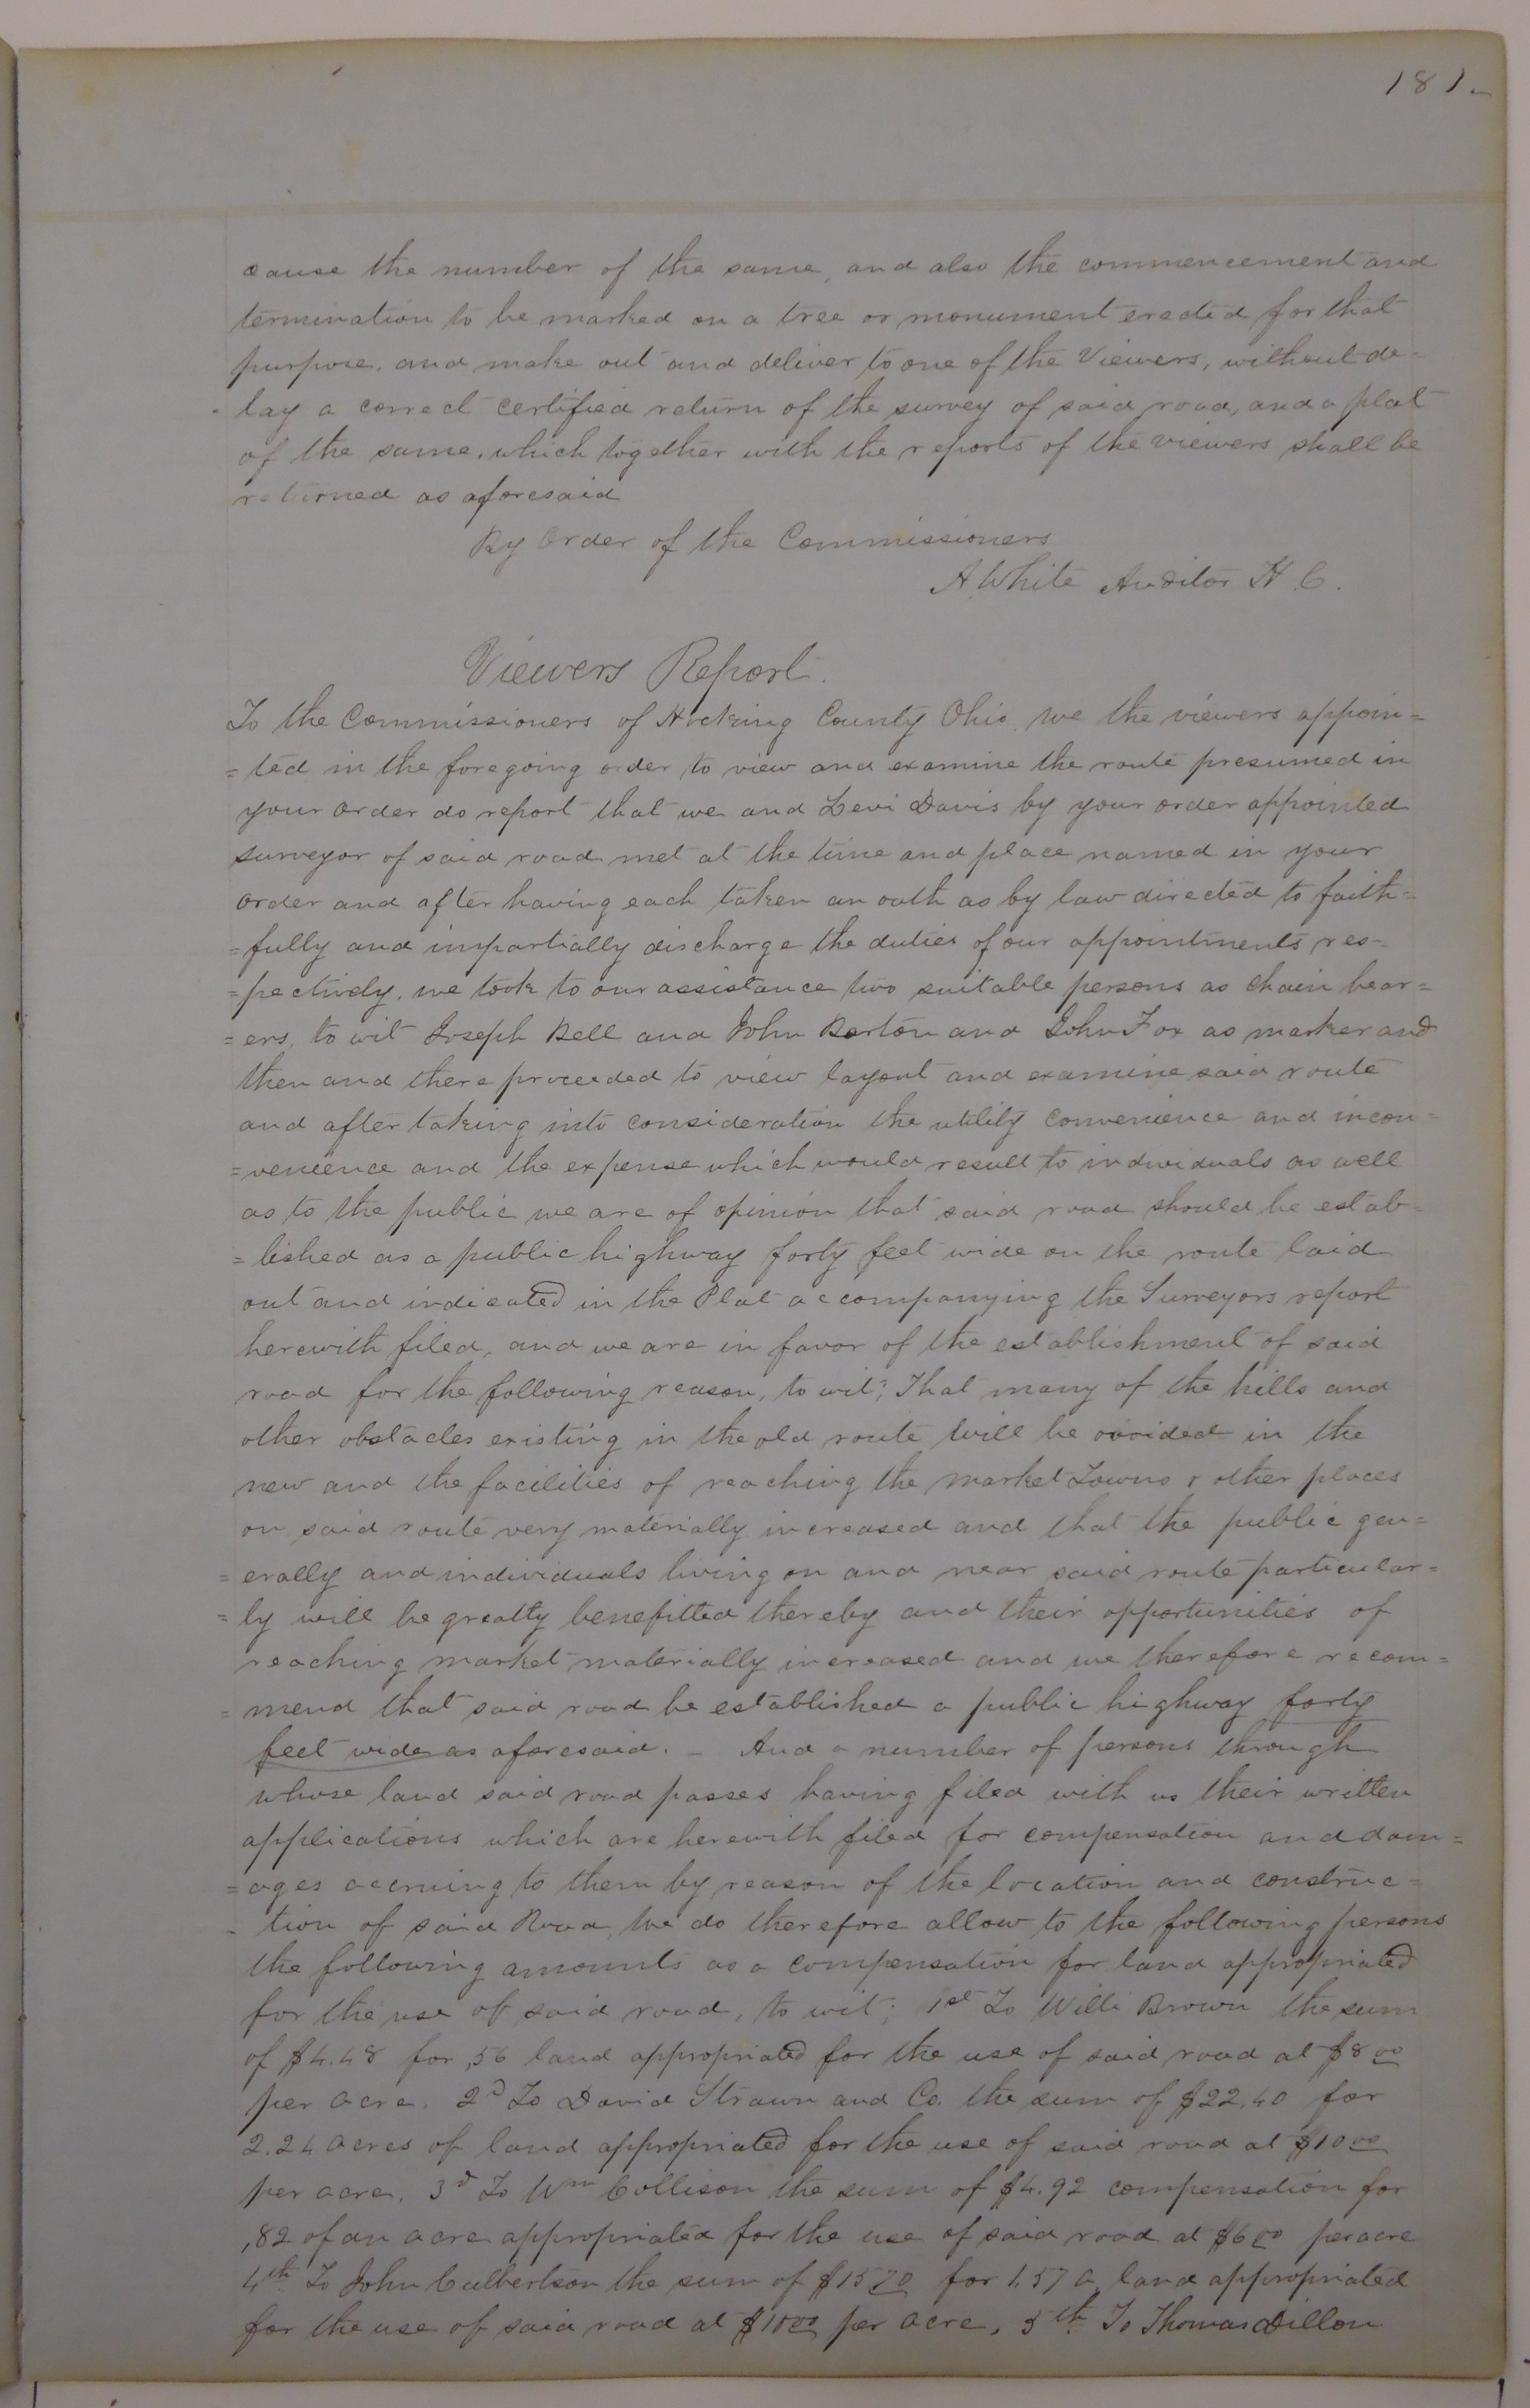 181.
cause the number of the same, and also the commencement and
termination to be marked on a tree or monument erected for that
purpose, and make out and deliver to one of the Viewers, without de=
lay a correct certified return of the survey of said road, and a plat
of the same, which together with the reports of the viewers shall be
returned as aforesaid
By Order of the Commissioners
A. White Auditor H. C.
Viewers Report.
To the Commissioners of Hocking County Ohio, we the viewers appoin=
=ted in the foregoing order to view and examine the route presumed in
your order do report that we and Levi Davis by your order appointed
surveyor of said road met at the time and place named in your
order and after having each taken an oath as by law directed to faith=
=fully and impartially discharge the duties of our appointments res=
=pectively, we took to our assistance two suitable persons as chain bear=
=ers, to wit Joseph Bell and John Barton and John Fox as marker and
then and there proceeded to view layout and examine said route
and after taking into consideration the utility convenience and incon=
=venience and the expense which would result to individuals as well
as to the public we are of opinion that said road should be estab=
=lished as a public highway forty feet wide on the route laid
out and indicated in the Plat accompanying the Surveyors report
herewith filed, and we are in favor of the establishment of said
road for the following reason, to wit; That many of the hills and
other obstacles existing in the old route will be avoided in the
new and the facilities of reaching the market Towns & other places
on said route very materially increased and that the public gen=
=erally and individuals living on and near said route particular=
=ly will be greatly benefitted thereby and their opportunities of
reaching market materially increased and we therefore recom=
=mend that said road be established a public highway forty
feet wide as aforesaid. – And a number of persons through
whose land said road passes having filed with us their written
applications which are herewith filed for compensation and dam=
=ages accruing to them by reason of the location and construc=
tion of said Road, We do therefore allow to the following persons
the following amounts as a compensation for land appropriated
for the use of said road, to wit; 1st To Willi Brown the sum
of $4.48 for ,56 land appropriated for the use of said road at $8 00
per acre. 2d To David Strawn and Co. the sum of $22.40 for
2.24 acres of land appropriated for the use of said road at $10 00
per acre. 3d To Wm Collison the sum of $4.92 compensation for
,82 of an acre appropriated for the use of said road at $6 00 per acre
4th To John Culbertson the sum of $15 70 for 1.57 a. land appropriated
for the use of said road at $10 00 per acre, 5th To Thomas Dillon